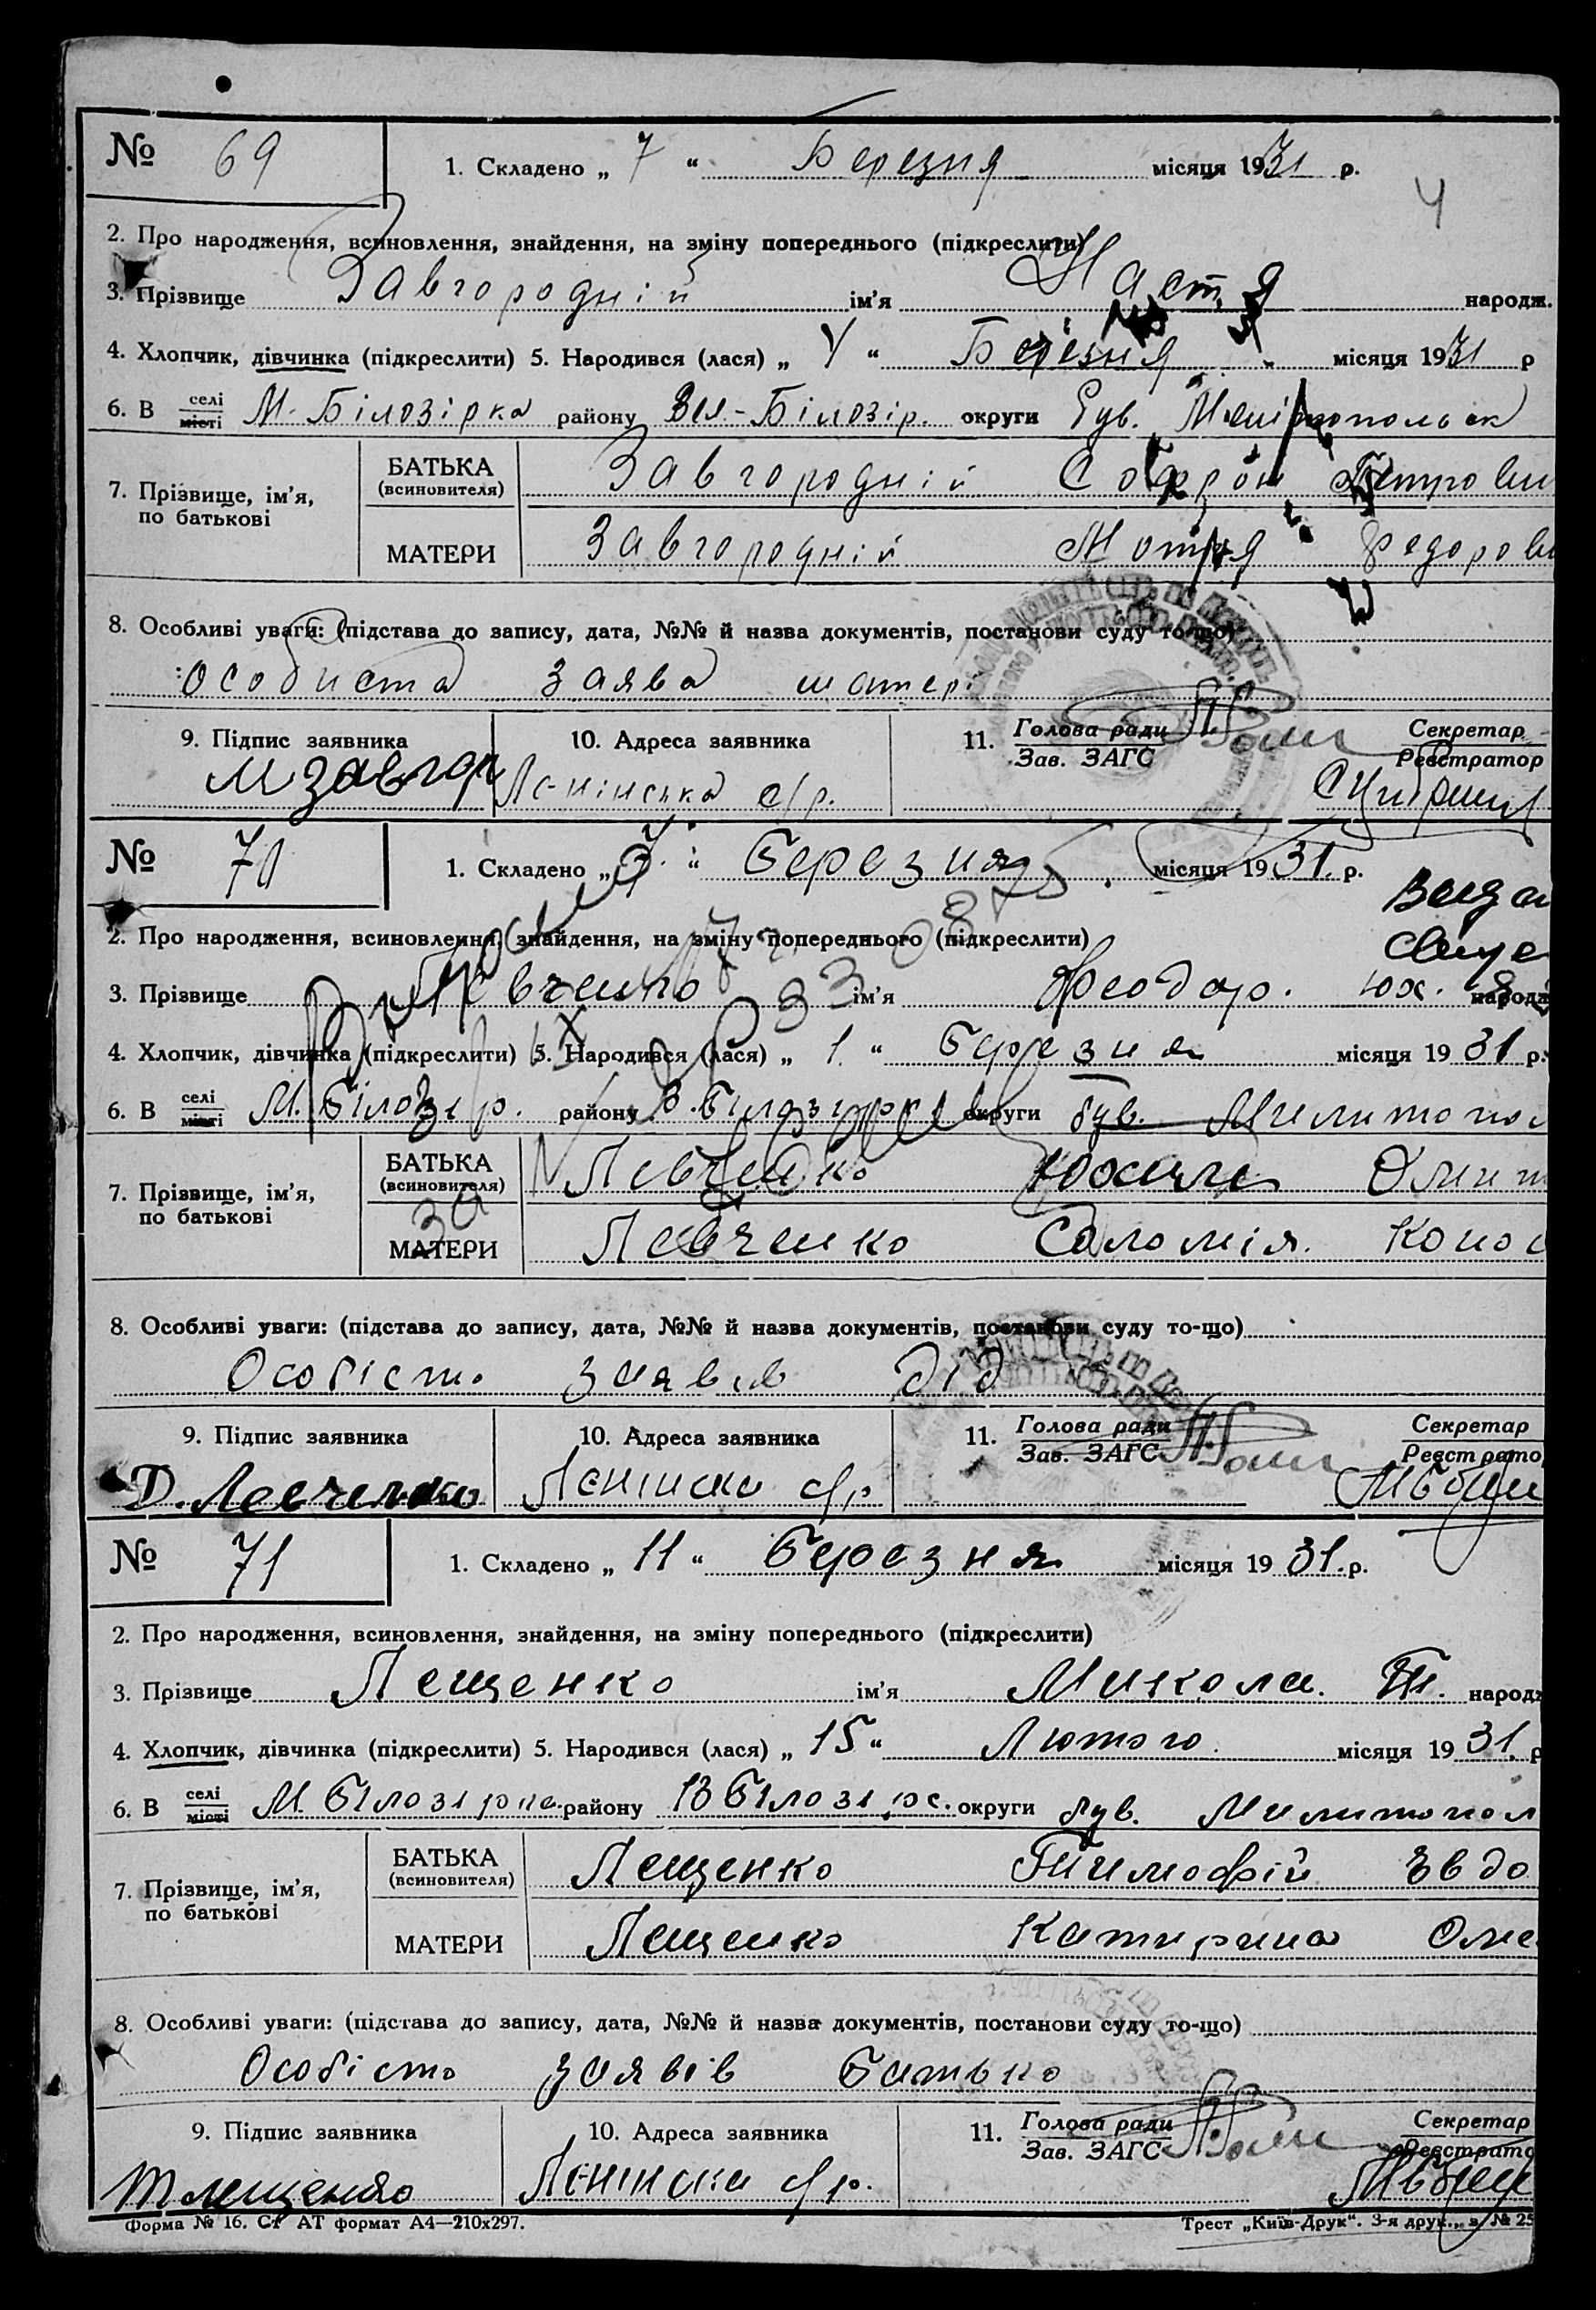 № 69
1. Складено „ 7 “ Березня місяця 1931 р.
4
2. Про народження, всиновлення, знайдення, на зміну попереднього (підкреслити)
3. Прізвище Завгородній ім'я Настя народж.
4. Хлопчик, дівчинка (підкреслити) 5. Народився (лася) „ 4 “ Березня місяця 1931 р
6. В селі місті М-Білозірка району Вел-Білозір. округи був. Мелітопольск
7. Прізвище, ім'я, по батькові
БАТЬКА (всиновителя) Завгородній Софрон Петрови
МАТЕРИ Завгородній Мотря Федорови
8. Особливі уваги: (підстава до запису, дата, №№ й назва документів, постанови суду то-що)
Особиста заява матері
9. Підпис заявника 10. Адреса заявника 11. Голова ради Зав. ЗАГС Секретар Реєстратор
М Завгор Ленінська с/р.
№ 70
1. Складено „ “ Березня місяця 1931. р.
2. Про народження, всиновлення, знайдення, на зміну попереднього (підкреслити)
3. Прізвище Левченко ім'я Феодор. Юх. народж
4. Хлопчик, дівчинка (підкреслити) 5. Народився (лася) „ 1 “ Березня місяця 1931 р.
6. В селі місті М. Білозір. району В. Білозірк округи був. Милитопол
7. Прізвище, ім'я, по батькові
БАТЬКА (всиновителя) Левченко
МАТЕРИ Левченко Соломія.
8. Особливі уваги: (підстава до запису, дата, №№ й назва документів, постанови суду то-що)
Особісто заявів дід
9. Підпис заявника 10. Адреса заявника 11. Голова ради Зав. ЗАГС Секретар Реєстрато
Д. Левченко Ленінска с/р
№ 71
1. Складено „ 11 “ Березня місяця 1931. р.
2. Про народження, всиновлення, знайдення, на зміну попереднього (підкреслити)
3. Прізвище Лещенко ім'я Микола. Ти. народж
4. Хлопчик, дівчинка (підкреслити) 5. Народився (лася) „ 15 “ Лютого. місяця 1931. р
6. В селі місті М. Білозірка. району В Білозірс. округи був. Милитопол
7. Прізвище, ім'я, по батькові
БАТЬКА (всиновителя) Лещенко Тимофій Эвдо
МАТЕРИ Лещенко Катирина Оме
8. Особливі уваги: (підстава до запису, дата, №№ й назва документів, постанови суду то-що)
Особісто заявів батько
9. Підпис заявника 10. Адреса заявника 11. Голова ради Зав. ЗАГС Секретар Реєстрато
Т Лещенко Ленінска с/р.
Форма № 16. Ст АТ формат А4—210x297.
Трест „Київ-Друк“. 3-я друк., з. № 25